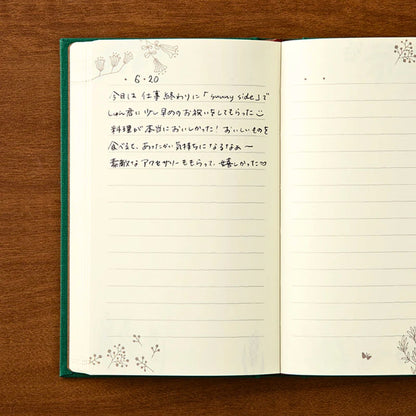 ・6・20
今日は仕事終わりに「sunny side」で
しゅん君に少し早めのお祝いをしてもらった
料理が本当においしかった! おいしいものを
食べると、あったかい気持ちになるなぁ〜
素敵なアクセサリーももらって、嬉しかった